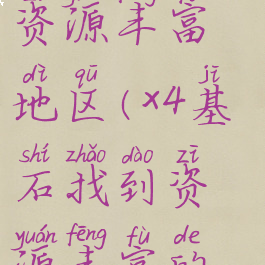 资源丰富
dì qū jī
地区(×4基
shí zhǎo dào zī
石找到资
yuán fēng fù de
源丰富的